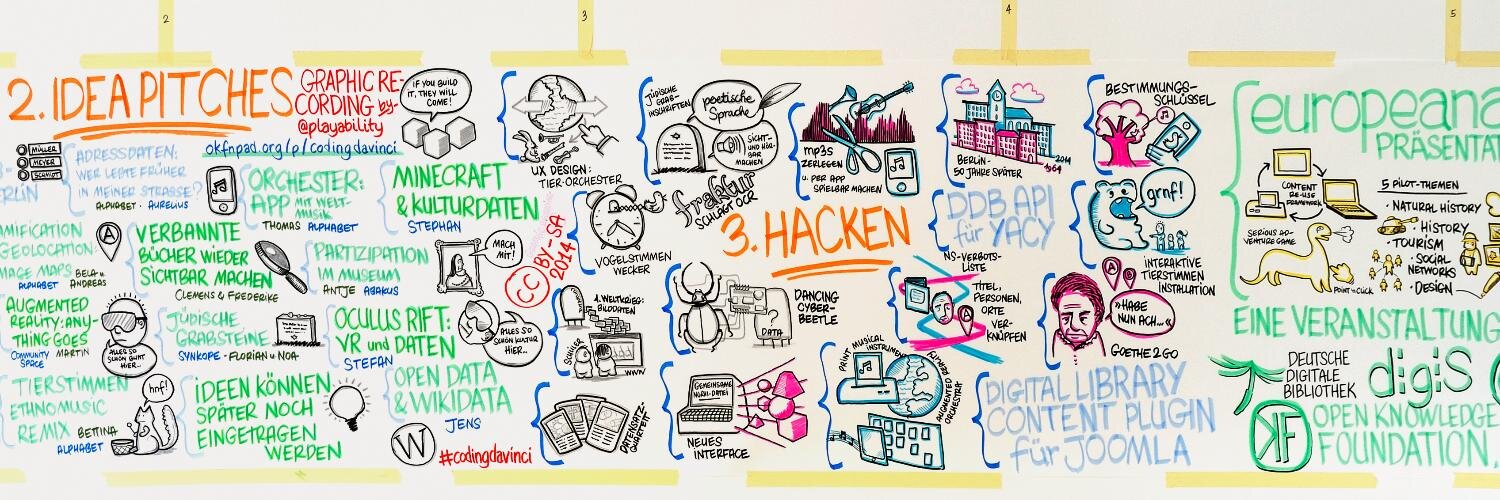 2
3
4
5
2. IDEA PITCHES
GRAPHIC RE-
CORDING by
@playability
okfnpad.org/p/codingdavinci
IF YOU BUILD
IT, THEY WILL
COME!
MÜLLER
MEYER
SCHMIDT
ADRESSDATEN:
WER LEBTE FRÜHER
IN MEINER STRASSE?
ALPHABET · AURELIUS
ORCHESTER:
APP MIT WELT-
MUSIK
THOMAS ALPHABET
MINECRAFT
& KULTURDATEN
STEPHAN
GEOLOCATION:
IMAGE MAPS BELA &
ALPHABET ANDREAS
A
VERBANNTE
BÜCHER WIEDER
SICHTBAR MACHEN
CLEMENS & FREDERIKE
PARTIZIPATION
IM MUSEUM
ANTJE ABAKUS
MACH
MIT!
CC BY-SA
2014
AUGMENTED
REALITY: ANY-
THING GOES
COMMUNITY
SPACE
MARTIN
ALLES SO
SCHÖN BUNT
HIER...
JÜDISCHE
GRABSTEINE
SYNKOPE · FLORIAN & NOA
OCULUS RIFT:
VR und DATEN
STEFAN
ALLES SO
SCHÖN KULTUR
HIER...
TIERSTIMMEN
ETHNOMUSIC
REMIX BETTINA
ALPHABET
hnf!
IDEEN KÖNNEN
SPÄTER NOCH
EINGETRAGEN
WERDEN
OPEN DATA
& WIKIDATA
JENS
W
#codingdavinci
UX DESIGN:
TIER-ORCHESTER
VOGELSTIMMEN
WECKER
1. WELTKRIEG:
BILDDATEN
SCHÜLER
WWW
DATENSATZ-
QUARTETT
JÜDISCHE
GRAB-
INSCHRIFTEN
poetische
Sprache
SICHT-
UND HÖR-
BAR
MACHEN
fraktur
SCHLÄGT OCR
mp3s
ZERLEGEN
U. PER APP
SPIELBAR MACHEN
3. HACKEN
DANCING
CYBER-
BEETLE
DATA
?
GEMEINSAME
NORM-DATEI
NEUES
INTERFACE
BERLIN-
50 JAHRE SPÄTER
2014
1964
BESTIMMUNGS-
SCHLÜSSEL
DDB API
für YACY
grnf!
INTERAKTIVE
TIERSTIMMEN
INSTALLATION
NS-VERBOTS-
LISTE
TITEL,
PERSONEN,
ORTE
VER-
KNÜPFEN
A
»HABE
NUN ACH...«
GOETHE2GO
PRINT MUSICAL INSTRUMENT
REMIXED
AUGMENTED
ORCHESTRA
DIGITAL LIBRARY
CONTENT PLUGIN
für JOOMLA
europeana
PRÄSENTAT
CONTENT
RE-USE
FRAMEWORK
SERIOUS AD-
VENTURE GAME
POINT 'N' CLICK
5 PILOT-THEMEN
· NATURAL HISTORY
· HISTORY
· TOURISM
· SOCIAL
NETWORKS
· DESIGN
EINE VERANSTALTUNG
DEUTSCHE
DIGITALE
BIBLIOTHEK
digiS
OPEN KNOWLEDGE
FOUNDATION,